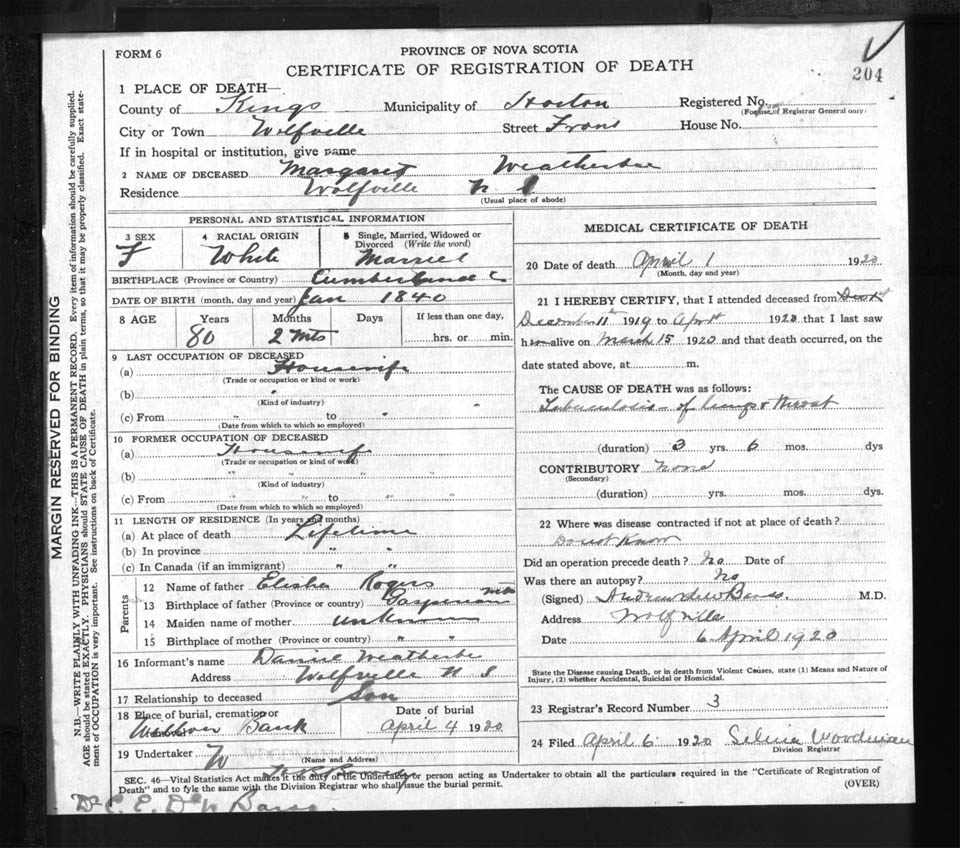 FORM 6
PROVINCE OF NOVA SCOTIA
CERTIFICATE OF REGISTRATION OF DEATH
204
1 PLACE OF DEATH—
County of Kings Municipality of Horton Registered No.
(For use of Registrar General only)
City or Town Wolfville Street Front House No.
If in hospital or institution, give name
2 NAME OF DECEASED Margaret Weatherbee
Residence Wolfville N S
(Usual place of abode)
PERSONAL AND STATISTICAL INFORMATION
3 SEX F
4 RACIAL ORIGIN White
5 Single, Married, Widowed or Divorced (Write the word) Married
BIRTHPLACE (Province or Country) Cumberland C
DATE OF BIRTH (month, day and year) Jan 1840
8 AGE Years 80 Months 2 Mts Days If less than one day, hrs. or min.
9 LAST OCCUPATION OF DECEASED
(a) Housewife
(Trade or occupation or kind or work)
(b)
(Kind of industry)
(c) From " to "
(Date from which to which so employed)
10 FORMER OCCUPATION OF DECEASED
(a) Housewife
(Trade or occupation or kind of work)
(b) " " "
(Kind of industry)
(c) From " to "
(Date from which to which so employed)
11 LENGTH OF RESIDENCE (In years and months)
(a) At place of death Lifetime
(b) In province " "
(c) In Canada (if an immigrant) " "
Parents
12 Name of father Elisha Rogers
13 Birthplace of father (Province or country)
14 Maiden name of mother unknown
15 Birthplace of mother (Province or country) " "
16 Informant's name Daniel Weatherbe
Address Wolfville N S
17 Relationship to deceased Son
18 Place of burial, cremation or Bank
Date of burial April 4 1920
19 Undertaker W
(Name and Address)
MEDICAL CERTIFICATE OF DEATH
20 Date of death April 1 1920
(Month, day and year)
21 I HEREBY CERTIFY, that I attended deceased from
December 11th 1919 to April 1920 that I last saw
h alive on March 15 1920 and that death occurred, on the
date stated above, at m.
The CAUSE OF DEATH was as follows:
Tuberculosis of lungs & throat
(duration) 3 yrs. 6 mos. dys
CONTRIBUTORY None
(Secondary)
(duration) yrs. mos. dys.
22 Where was disease contracted if not at place of death?
Do not Know
Did an operation precede death? No Date of
Was there an autopsy? No
(Signed) Andrew deW Barss. M.D.
Address Wolfville
Date 6 April 1920
State the Disease causing Death, or in death from Violent Causes, state (1) Means and Nature of
Injury, (2) whether Accidental, Suicidal or Homicidal.
23 Registrar's Record Number 3
24 Filed April 6 1920 Selina Woodman
Division Registrar
SEC. 46—Vital Statistics Act makes it the duty of the Undertaker or person acting as Undertaker to obtain all the particulars required in the "Certificate of Registration of
Death" and to fyle the same with the Division Registrar who shall issue the burial permit.
(OVER)
Dr C. E. De W Barss.
MARGIN RESERVED FOR BINDING
N.B.—WRITE PLAINLY WITH UNFADING INK—THIS IS A PERMANENT RECORD. Every item of information should be carefully supplied.
AGE should be stated EXACTLY. PHYSICIANS should STATE CAUSE OF DEATH in plain terms, so that it may be properly classified. Exact state-
ment of OCCUPATION is very important. See instructions on back of Certificate.